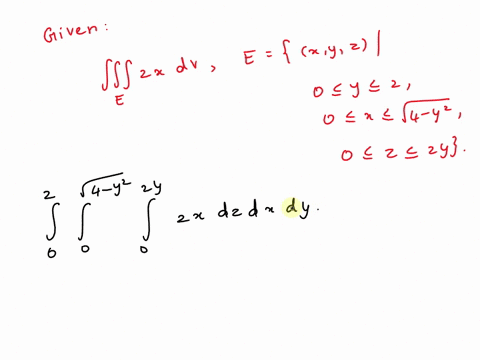 Given:
∭_E 2x dv, E = { (x,y,z) |
0 ≤ y ≤ 2,
0 ≤ x ≤ √(4-y²),
0 ≤ z ≤ 2y}.
∫_0^2 ∫_0^√(4-y²) ∫_0^2y 2x dz dx dy.